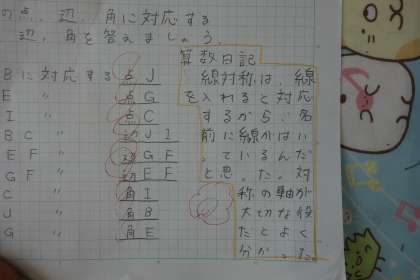 の点、辺、角に対応する
辺、角を答えましょう。
Bに対応する点J
E 〃 点G
I 〃 点C
BC 〃 辺JI
EF 〃 辺GF
GF 〃 辺EF
C 〃 角I
J 〃 角B
G 〃 角E
算数日記
線対称は、線
を入れると対応
するから、名
前に線がはい
っているんだ
と思った。対
称の軸が
大切な役
だとよく
分かった。